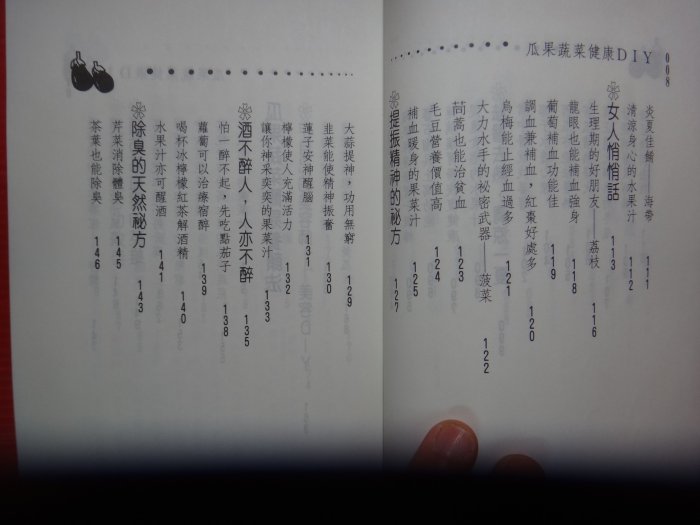 008
瓜果蔬菜健康DIY
炎夏佳餚——海帶 111
清涼身心的水果汁 112
女人悄悄話 113
生理期的好朋友——荔枝 116
龍眼也能補血強身 118
葡萄補血功能佳 119
調血兼補血,紅棗好處多 120
烏梅能止經血過多 121
大力水手的祕密武器——菠菜 122
茼蒿也能治貧血 123
毛豆營養價值高 124
補血暖身的果菜汁 125
提振精神的祕方 127
大蒜提神,功用無窮 129
韭菜能使精神振奮 130
蓮子安神醒腦 131
檸檬使人充滿活力 132
讓你神采奕奕的果菜汁 133
酒不醉人,人亦不醉 135
怕一醉不起,先吃點茄子 138
蘿蔔可以治療宿醉 139
喝杯冰檸檬紅茶解酒精 140
水果汁亦可醒酒 141
除臭的天然祕方 143
芹菜消除體臭 145
茶葉也能除臭 146